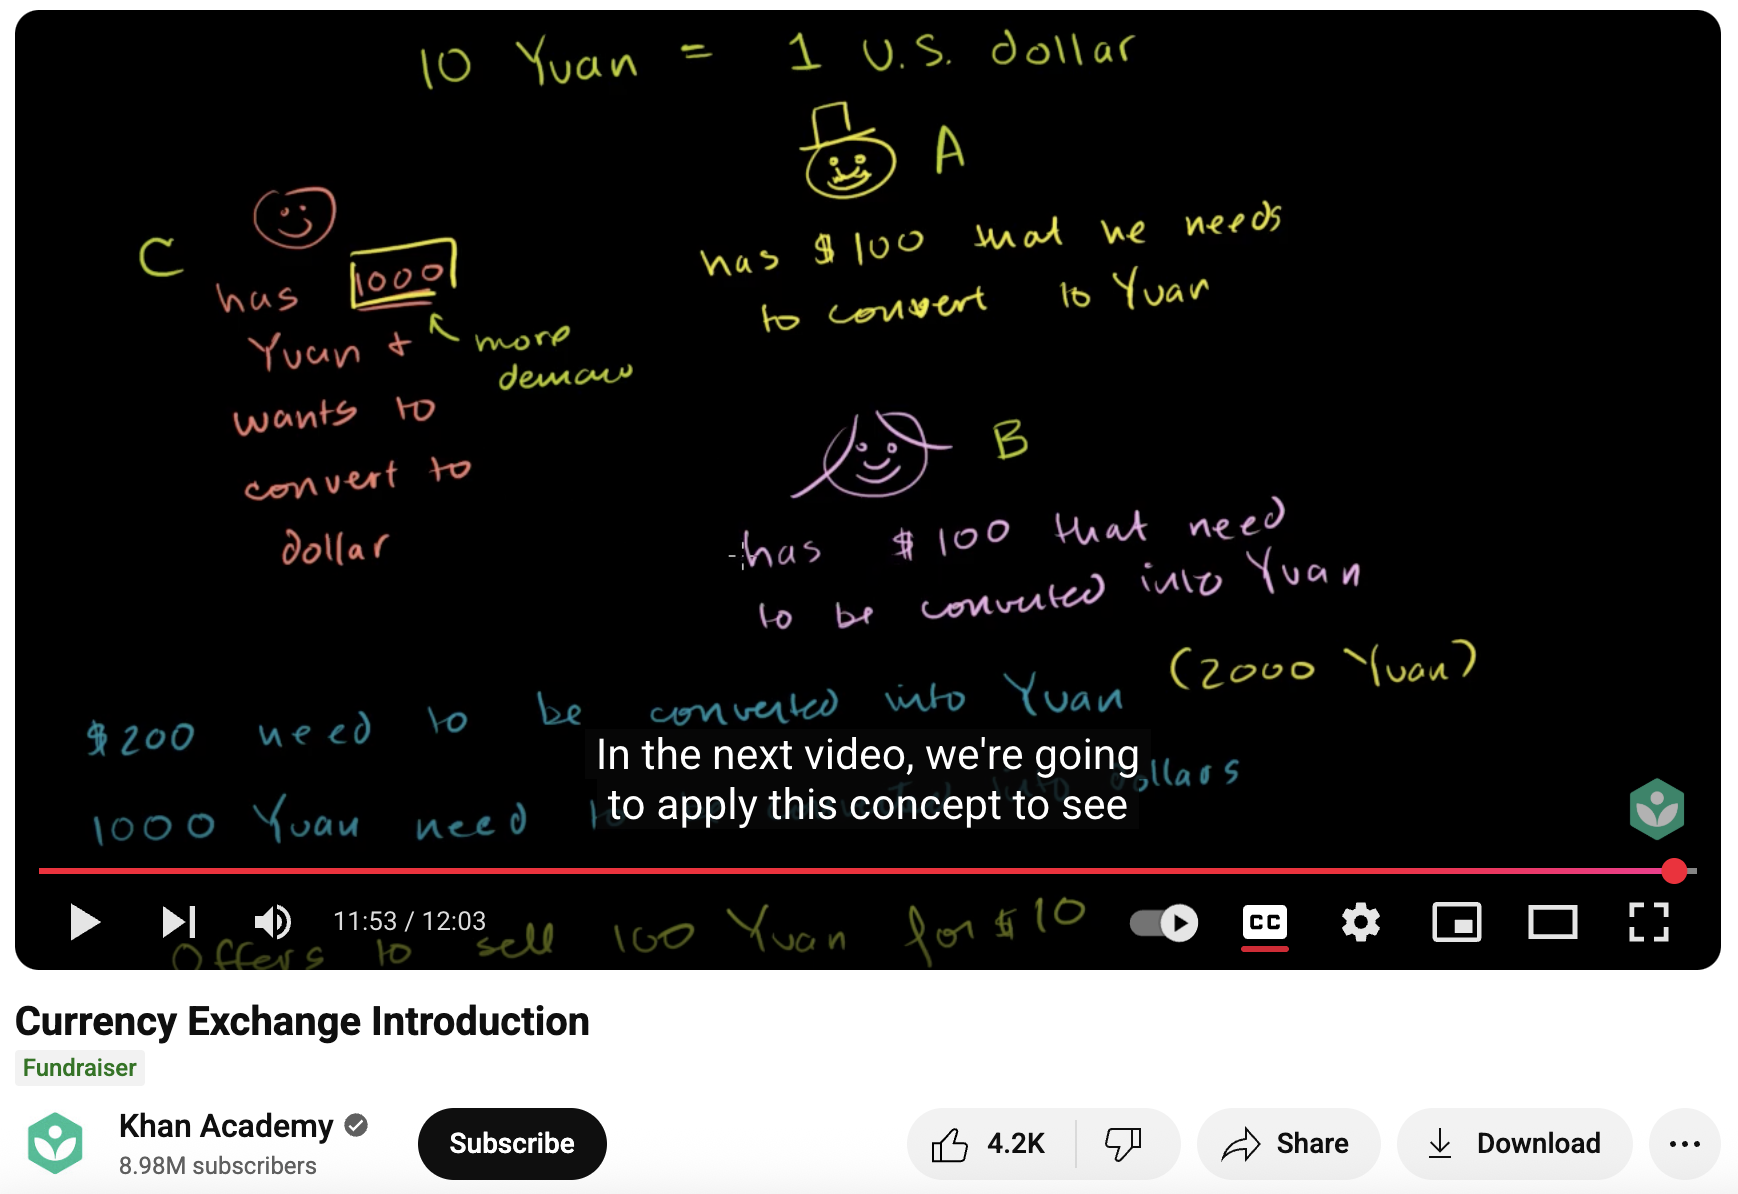 10 Yuan = 1 U.S. dollar
A
has $100 that he needs
to convert to Yuan
C
has 1000
Yuan +
wants to
convert to
dollar
more
demand
B
has $100 that need
to be converted into Yuan
$200 need to be converted into Yuan (2000 Yuan)
1000 Yuan need to be converted into dollars
In the next video, we're going
to apply this concept to see
11:53 / 12:03
CC
Offers to sell 100 Yuan for $10
Currency Exchange Introduction
Fundraiser
Khan Academy
8.98M subscribers
Subscribe
4.2K
Share
Download